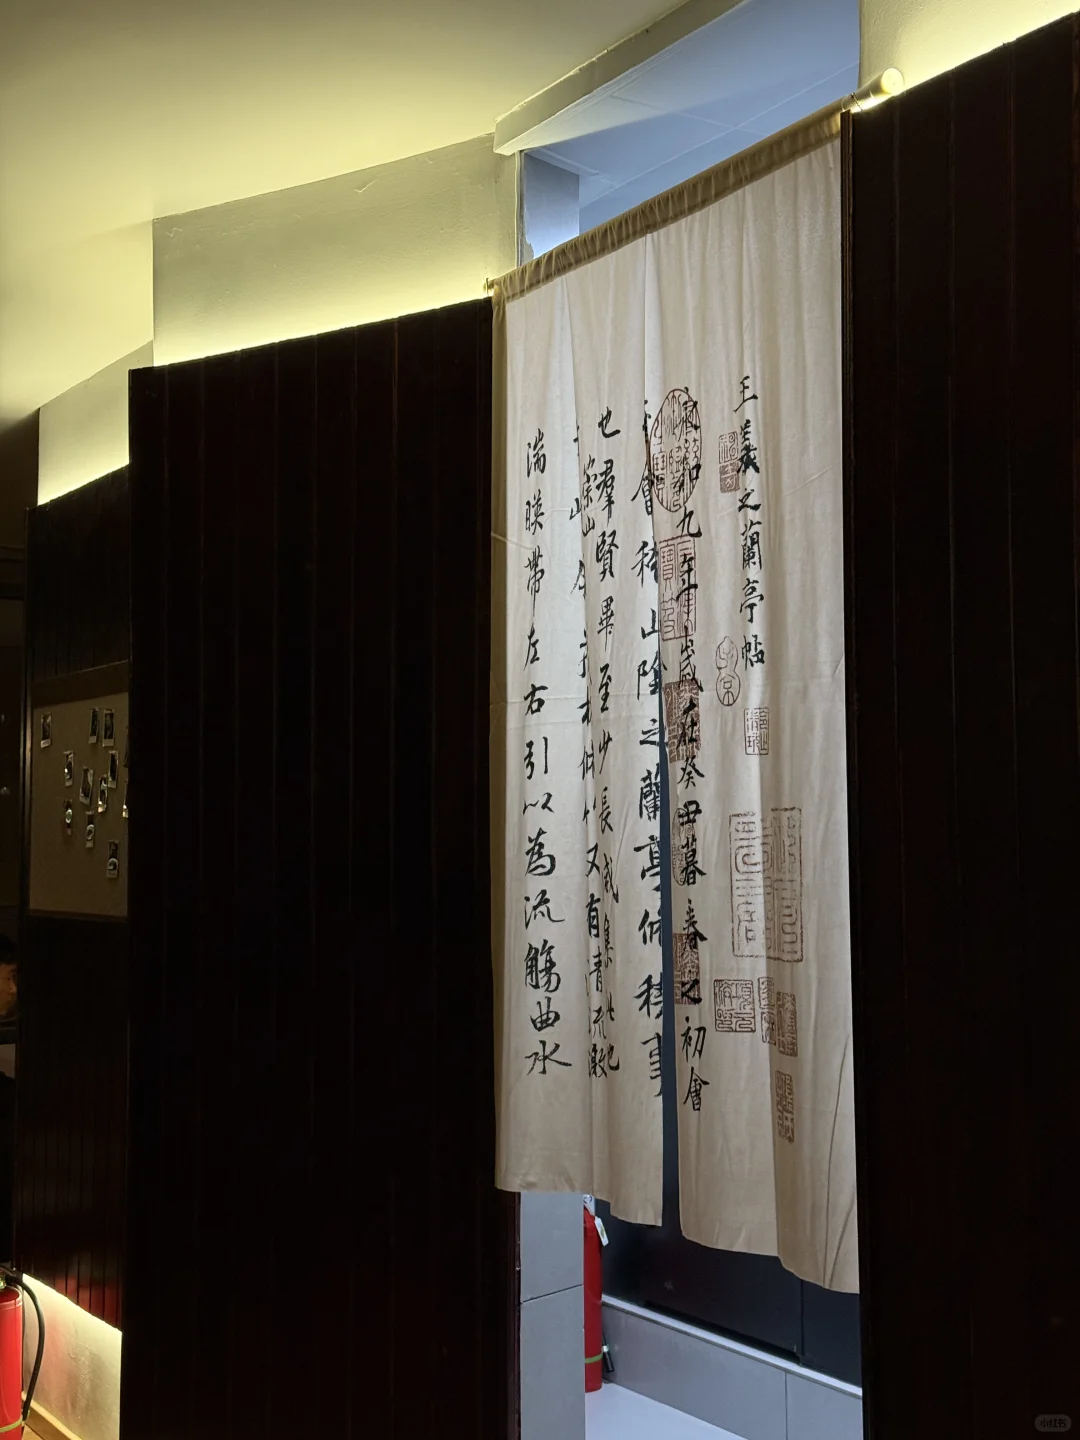 王羲之蘭亭帖
永和九年歲在癸丑暮春之初會
會稽山陰之蘭亭脩稧事
也羣賢畢至少長咸集此地
崇山
茂林脩竹又有清流激
湍暎帶左右引以為流觴曲水
小红书